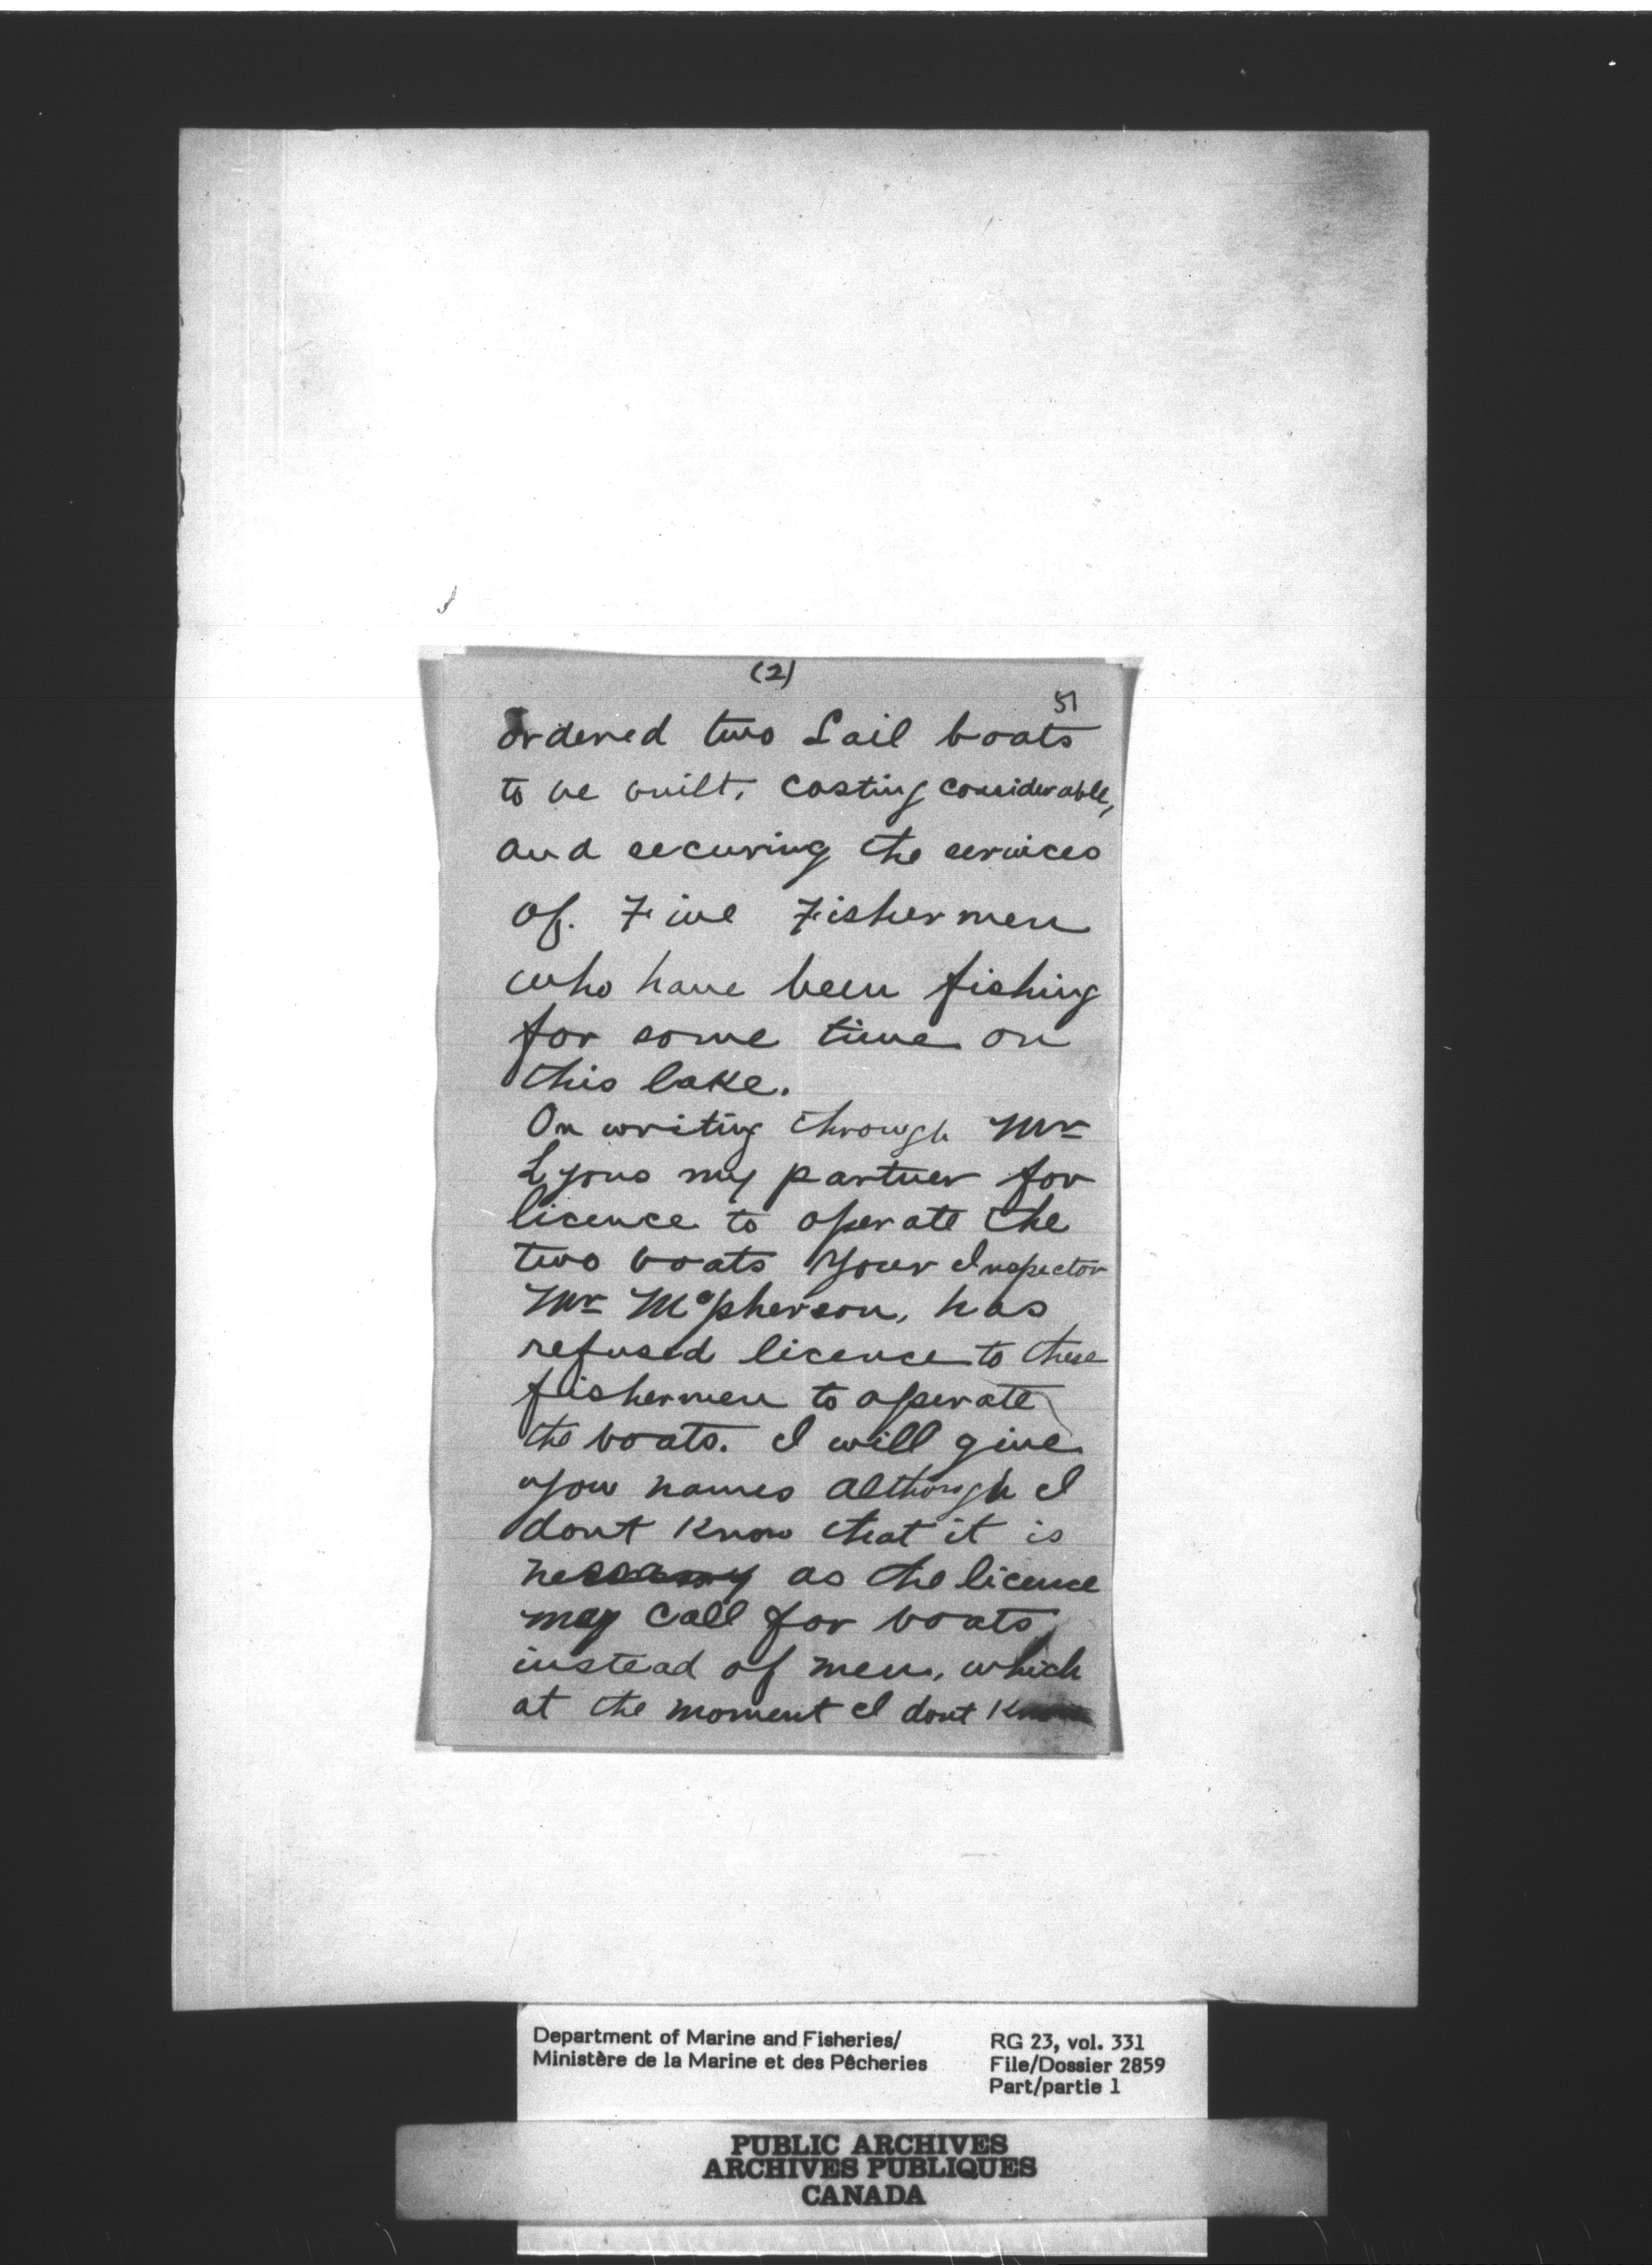 (2)
51
ordered two Sail boats
to be built, costing considerable,
and securing the services
of. Five Fishermen
who have been fishing
for some time on
this lake.
On writing through Mr
Lyons my partner for
licence to operate the
two boats your Inspector
Mr McPherson, has
refused licence to these
fishermen to operate
the boats. I will give
you names although I
dont know that it is
nessarry as the licence
may call for boats,
instead of men, which
at the moment I dont know
Department of Marine and Fisheries/
Ministère de la Marine et des Pêcheries
RG 23, vol. 331
File/Dossier 2859
Part/partie 1
PUBLIC ARCHIVES
ARCHIVES PUBLIQUES
CANADA